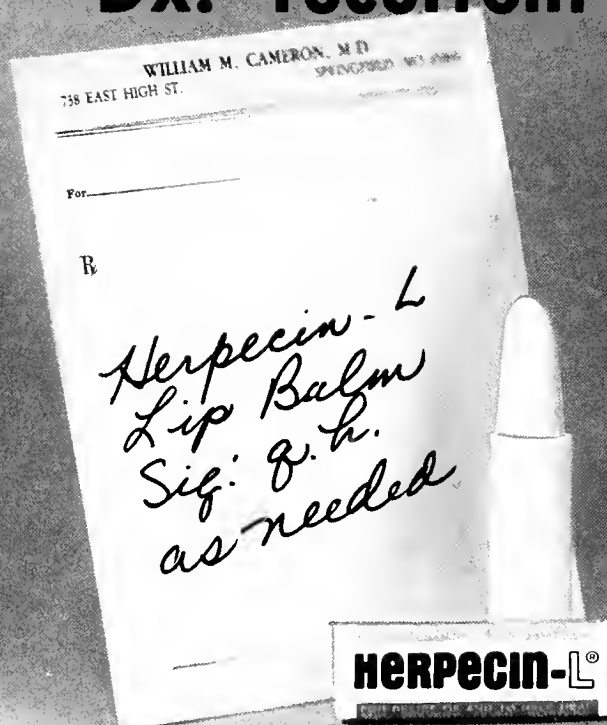 Dx: recurrent
WILLIAM M. CAMERON, M.D.
738 EAST HIGH ST.
For
℞
Herpecin-L
Lip Balm
Sig: q.h.
as needed
HERPECIN-L®